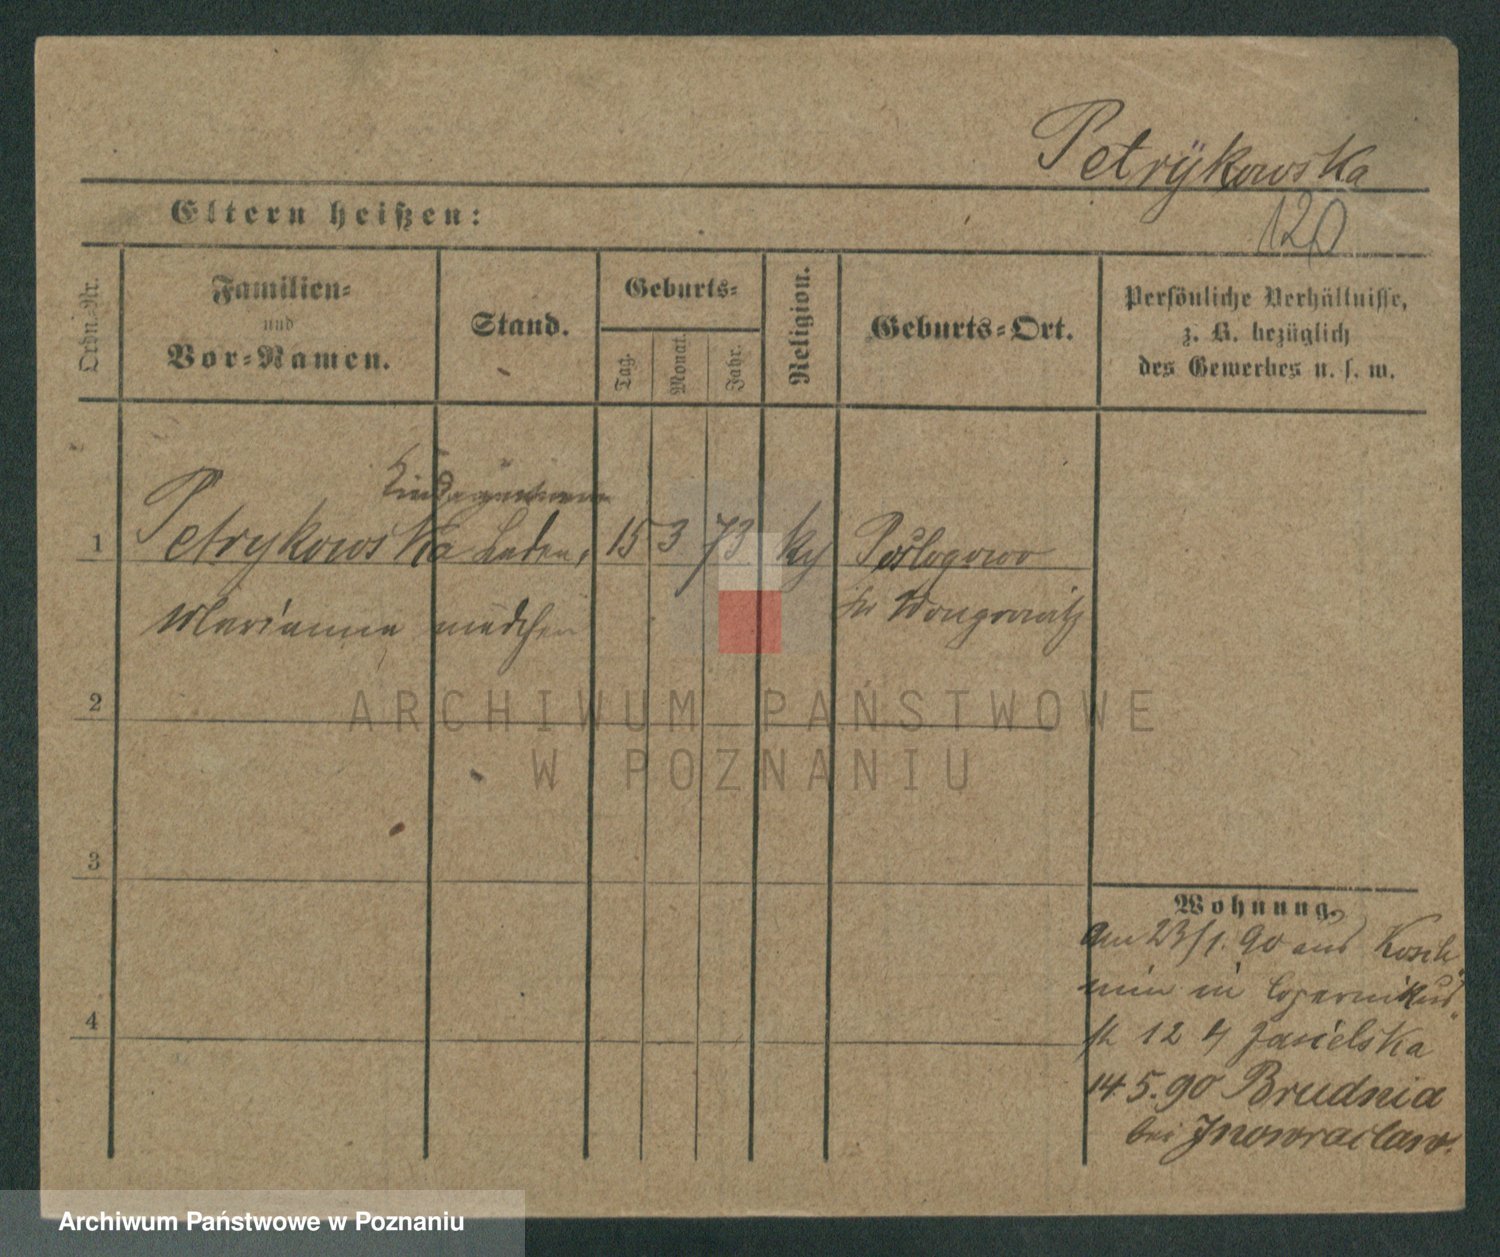 Petrÿkowska
120
Eltern heißen:
Ordn.-Nr.
Familien-
und
Vor-Namen.
Stand.
Geburts-
Tag.
Monat.
Jahr.
Religion.
Geburts-Ort.
Persönliche Verhältnisse,
z. B. bezüglich
des Gewerbes u. s. w.
Kindergärtnerin
1 Petrykowska Laden, 15 3 73 ky Posługowo
Marianna mädchen Kr Wongrowitz
2
3
4
Wohnung.
am 23/1. 90 aus Kosch
min in Copernikus
str 12 b Jasielska
14.5.90 Brudnia
bei Jnowraclaw.
ARCHIWUM PAŃSTWOWE
W POZNANIU
Archiwum Państwowe w Poznaniu